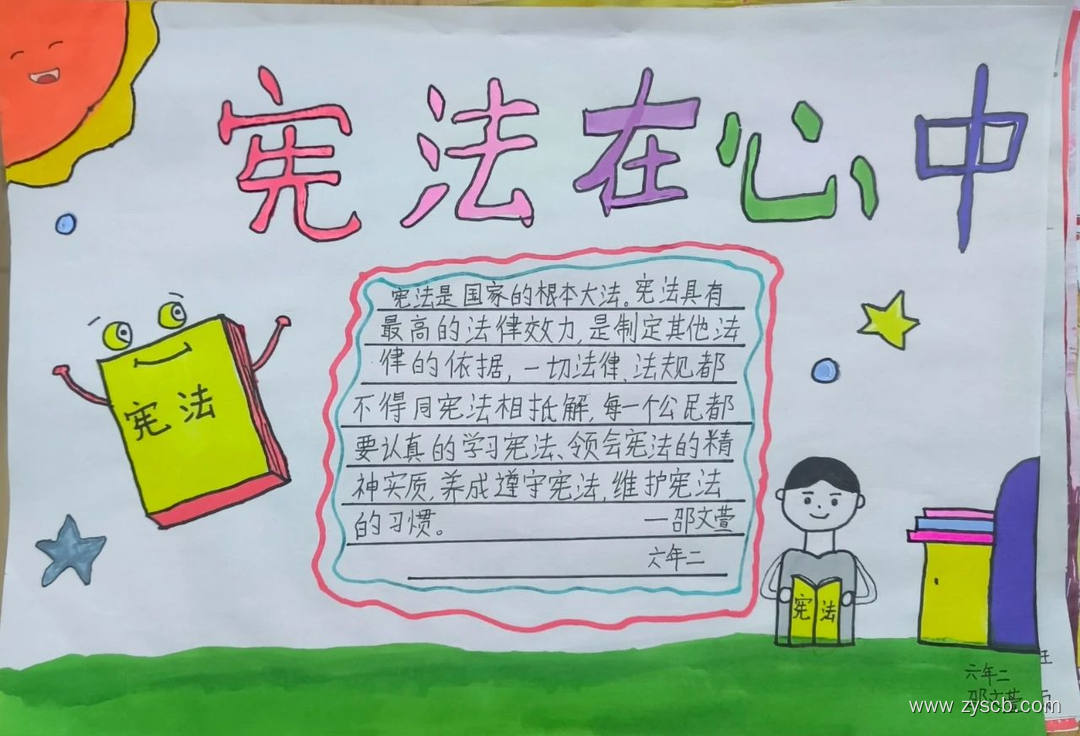 宪法在心中
宪法是国家的根本大法。宪法具有
最高的法律效力,是制定其他法
律的依据,一切法律、法规都
不得同宪法相抵解,每一个公民都
要认真的学习宪法、领会宪法的精
神实质,养成遵守宪法,维护宪法
的习惯。 —邵文萱
六年二
宪法
宪 法
六年二
邵文萱
www.zyscb.com